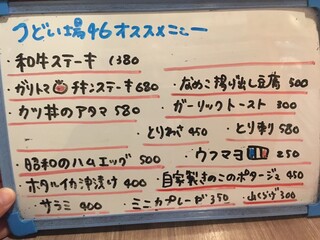 つどい場46オススメメニュー
・和牛ステーキ 1380
・ガリトマチキンステーキ680
・なめこ揚り出し豆腐 500
・カツ丼のアタマ 580
・ガーリックトースト 300
・とりわさ 450
・とり刺り 580
・昭和のハムエッグ 500
・ウフマヨ 250
・ホタルイカ沖漬け 400
・自家製きのこのポタージュ 450
・サラミ 400
・ミニカプレーゼ 350
・山くらげ 300